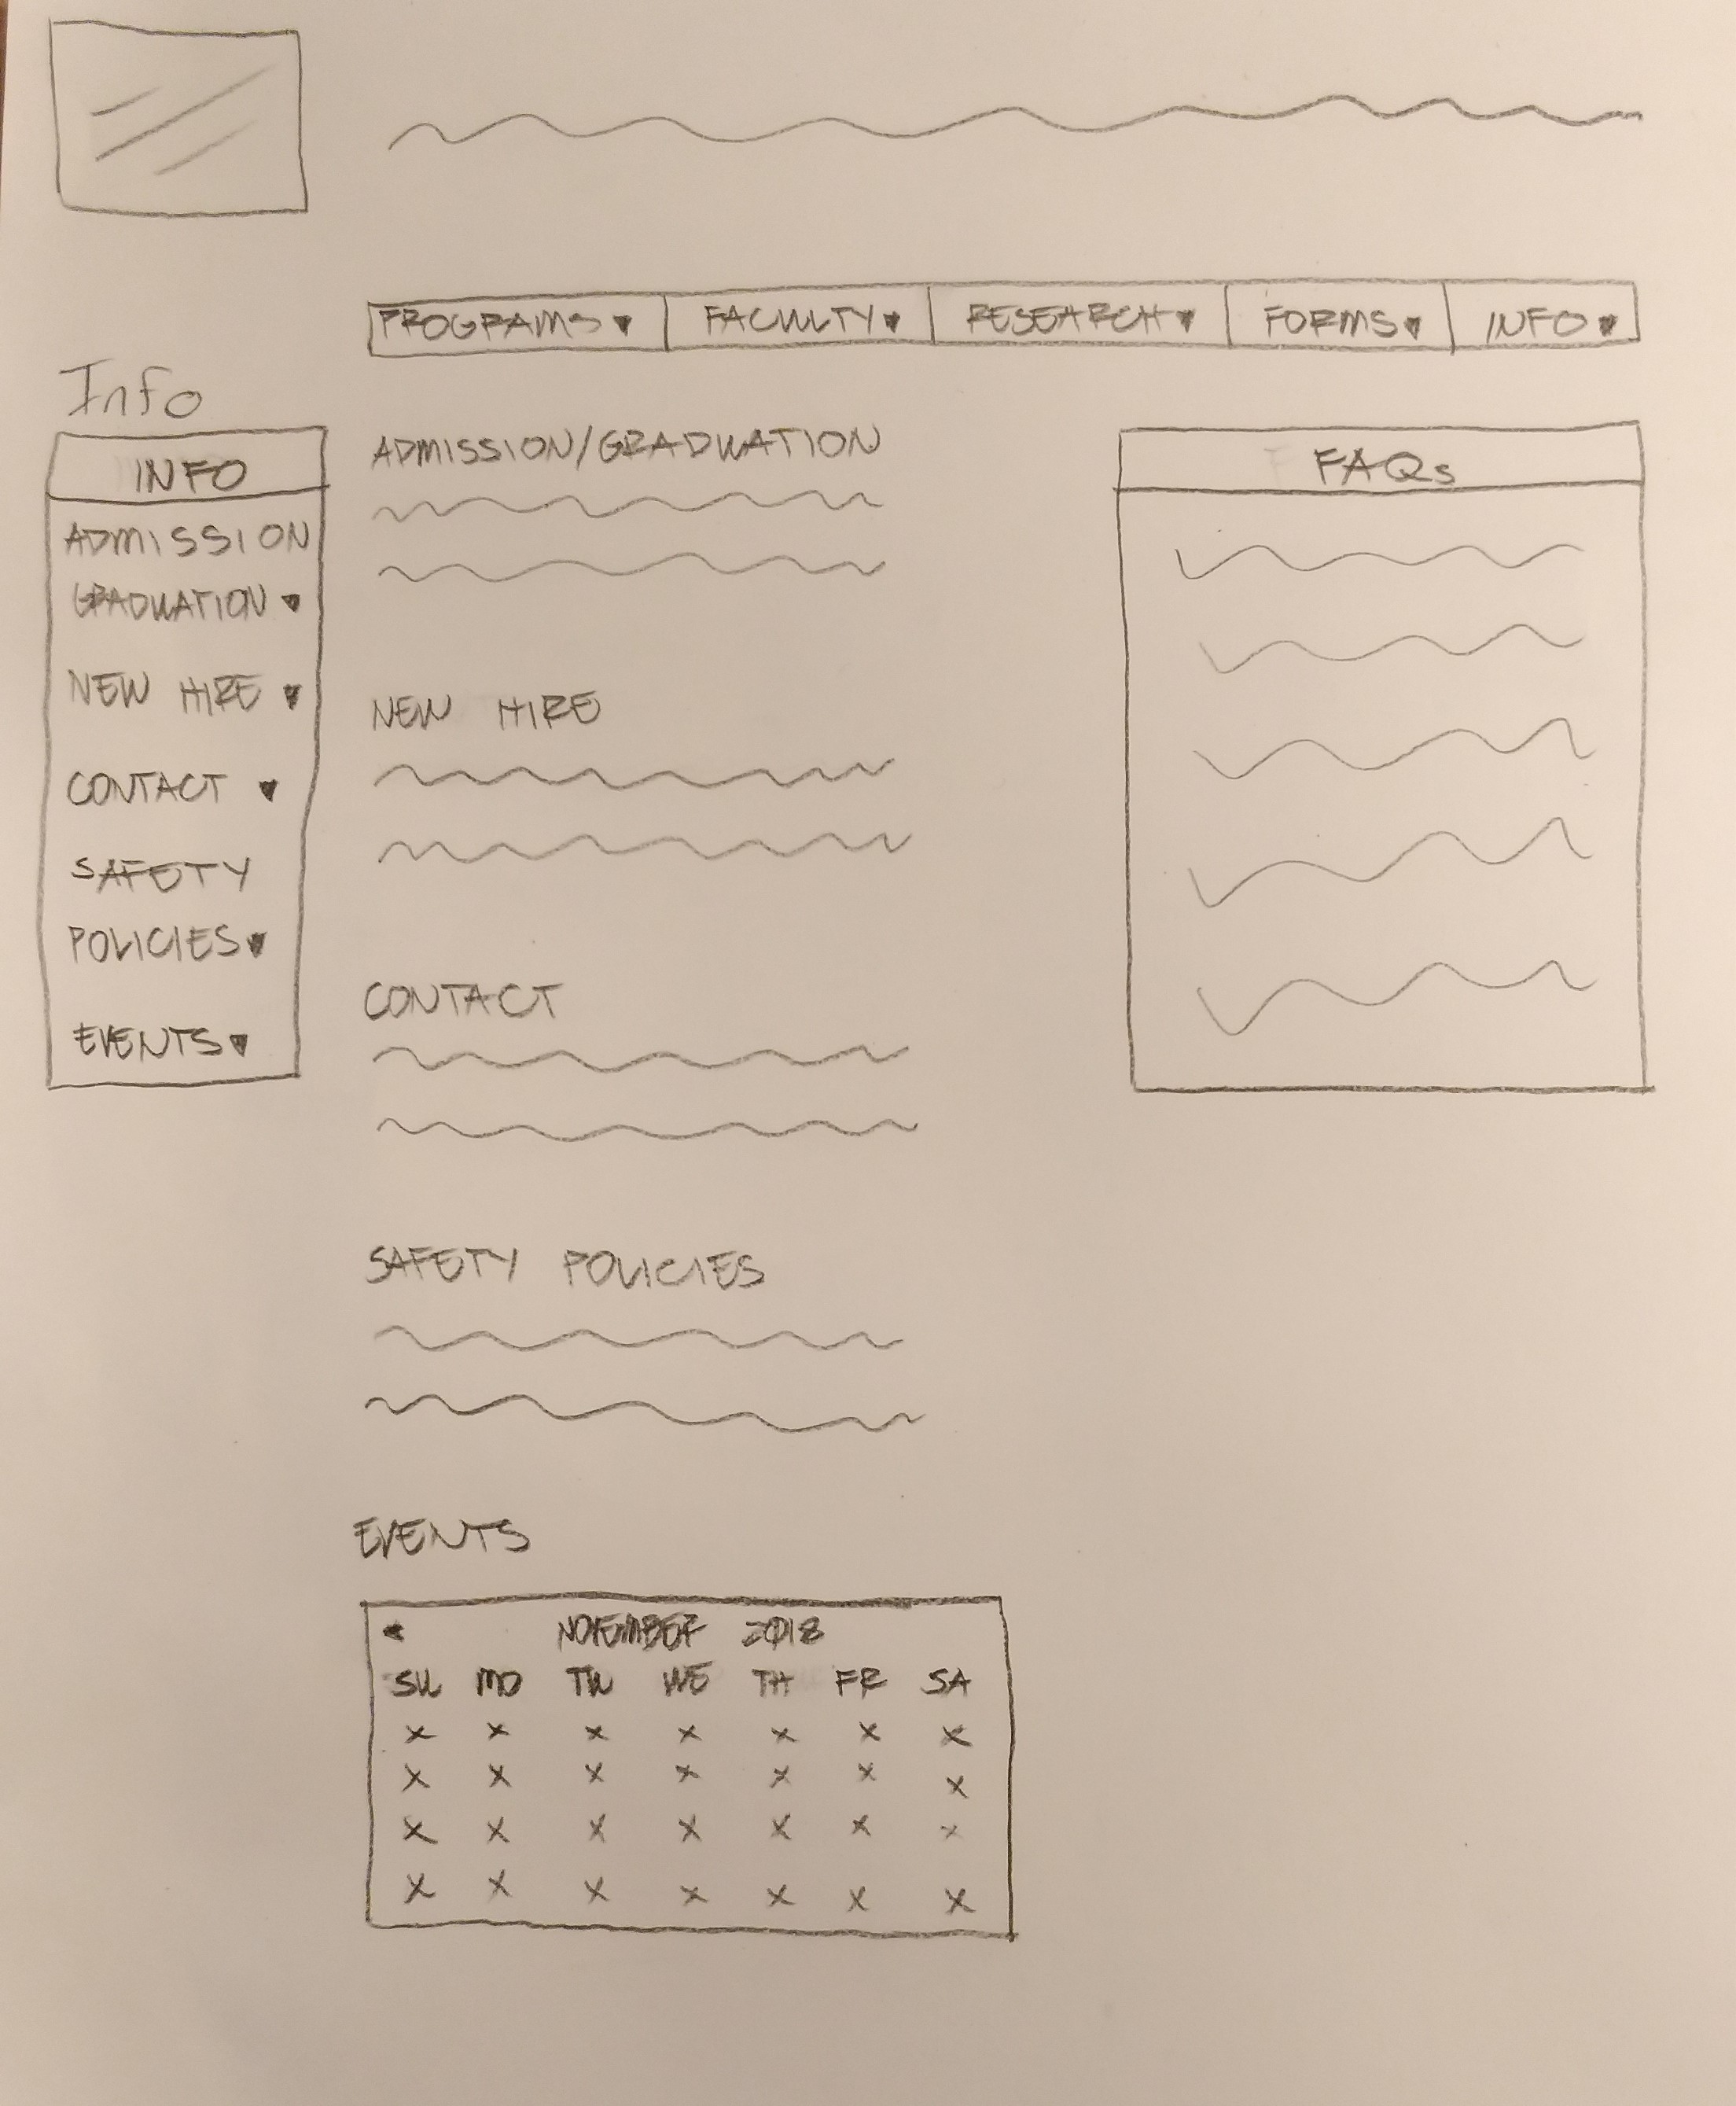 PROGRAMS FACULTY RESEARCH FORMS INFO
Info
INFO
ADMISSION
GRADUATION
NEW HIRE
CONTACT
SAFETY
POLICIES
EVENTS
ADMISSION/GRADUATION
NEW HIRE
CONTACT
SAFETY POLICIES
EVENTS
NOVEMBER 2018
SU MO TU WE TH FR SA
x x x x x x x
x x x x x x x
x x x x x x x
x x x x x x x
FAQs